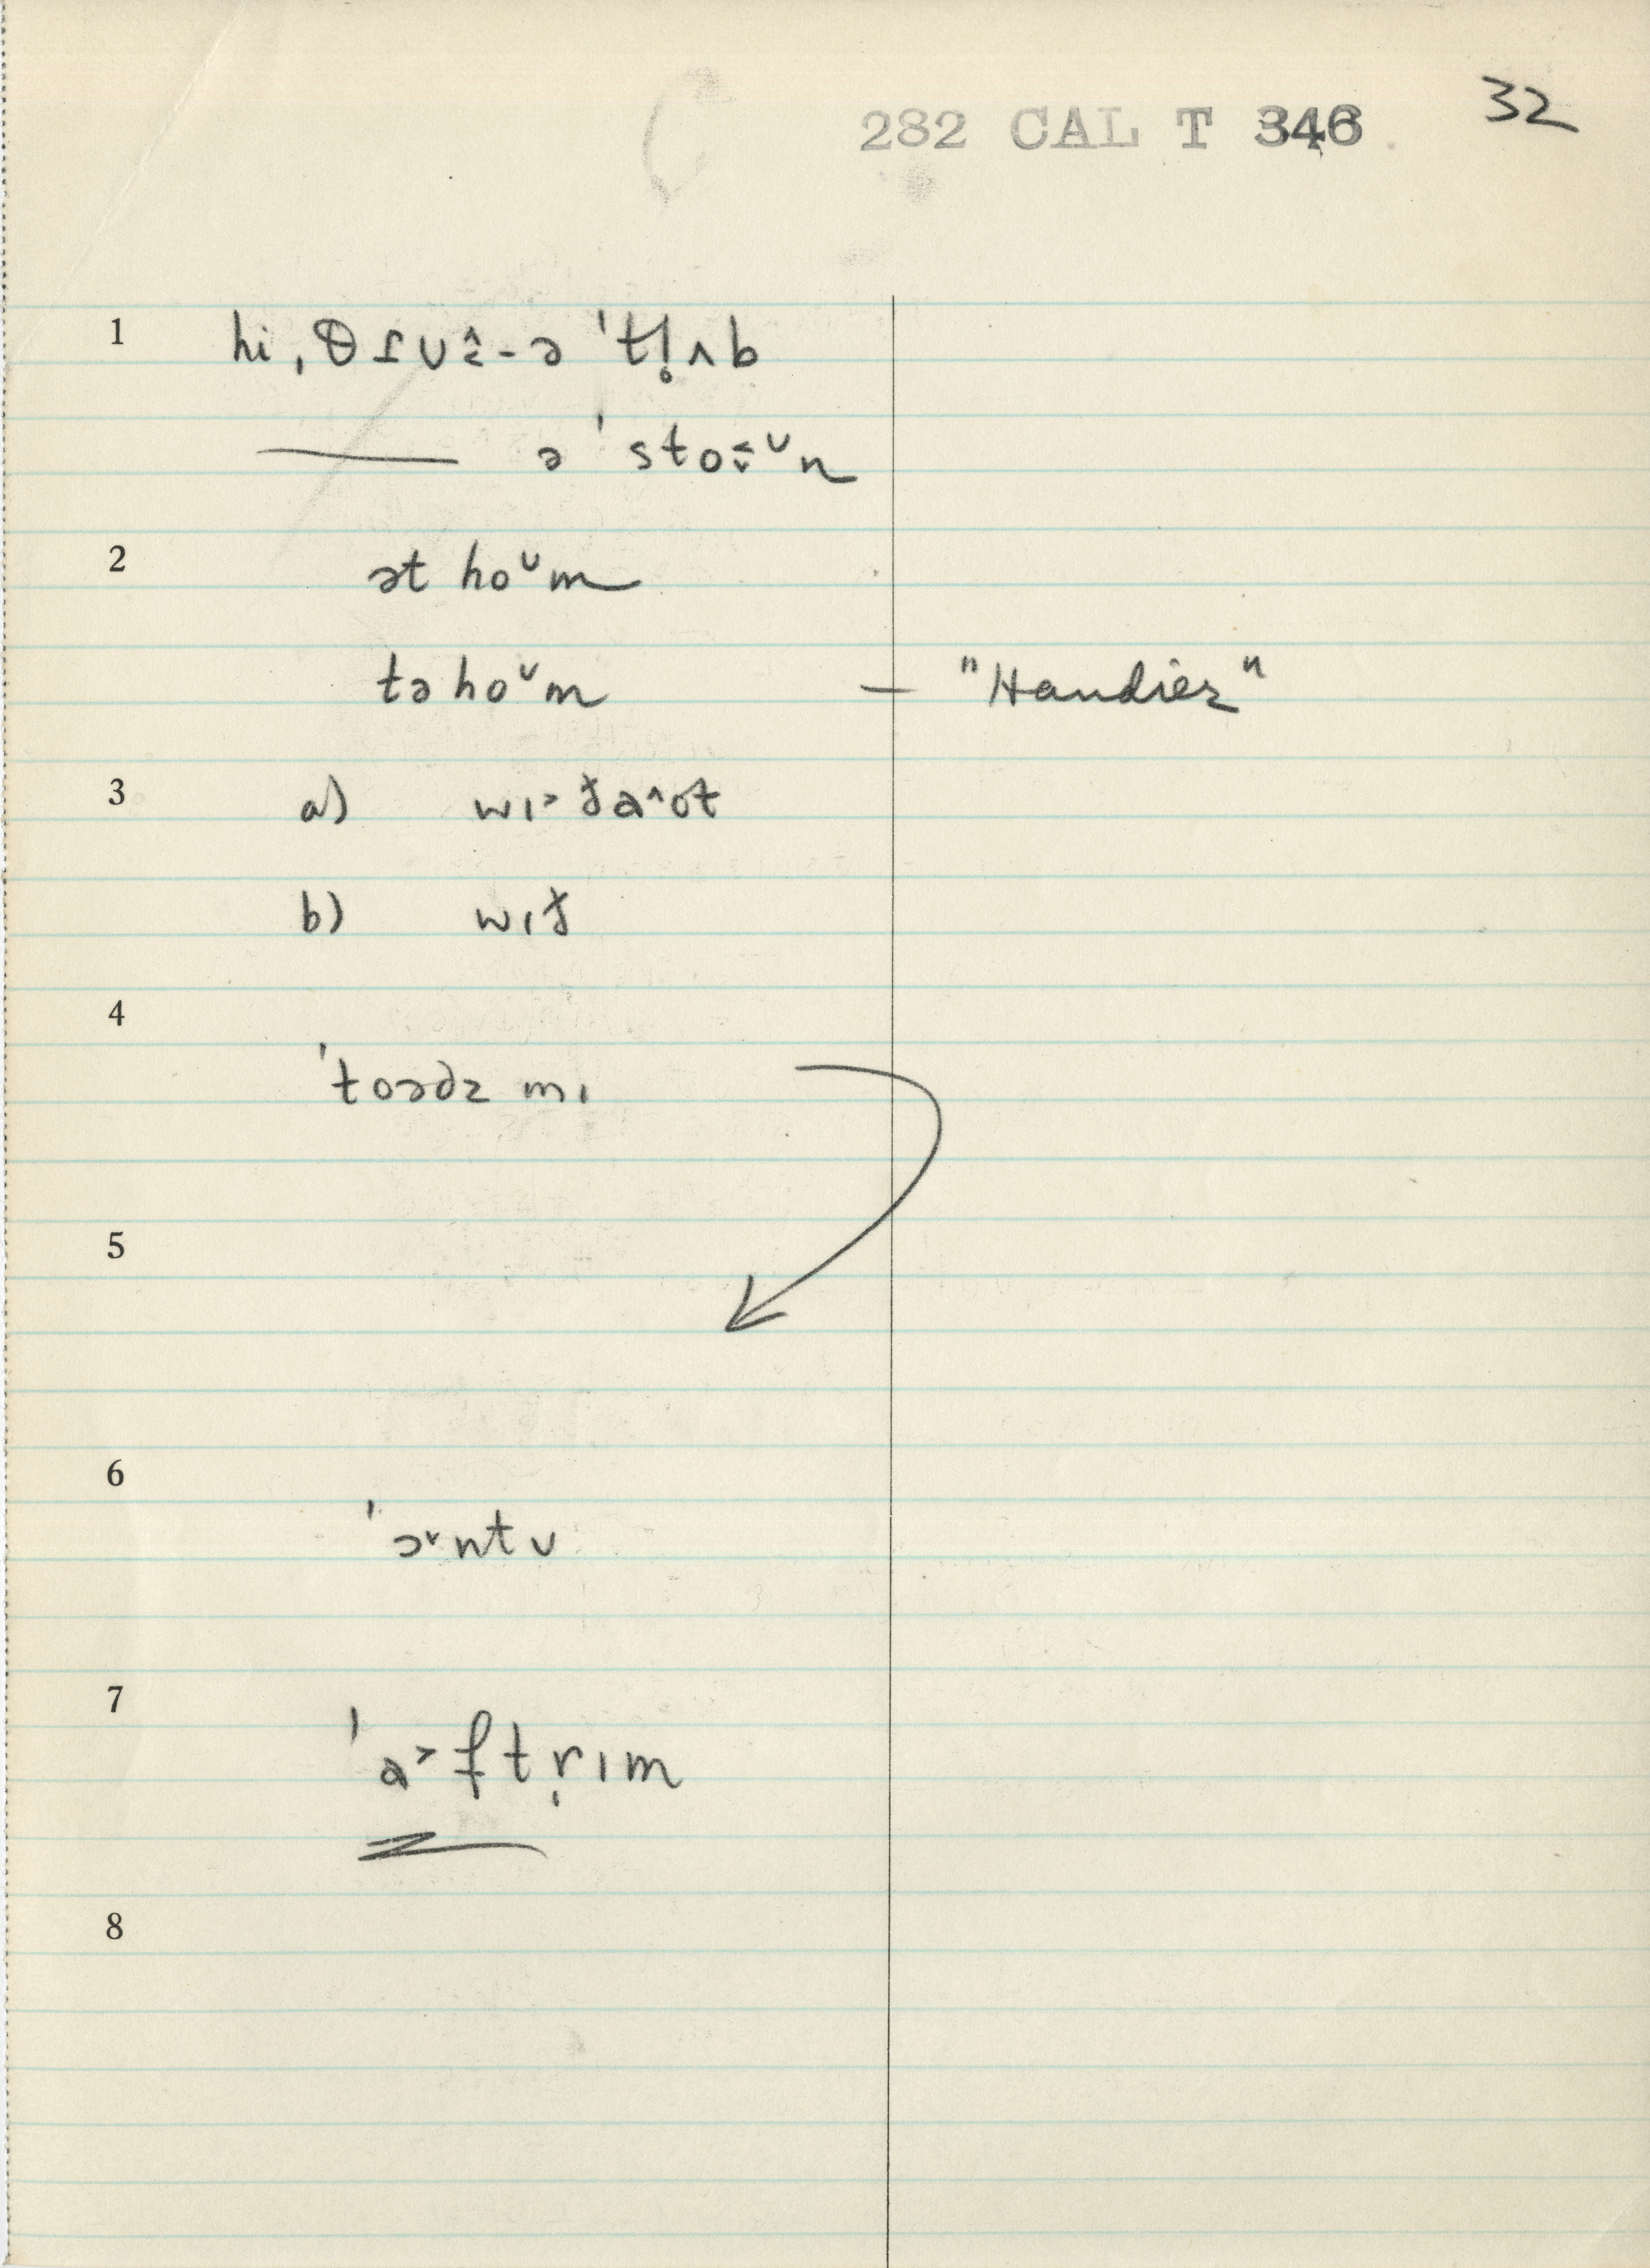 282 CAL T 346
32
1 hi ˌθɪʊ̂-ə ˈtl̥ʌb
ə ˈstoᵁn
2 ət hoᵁm
tə hoᵁm – "Handier"
3 a) wɪ˃ðaˆʊt
b) wɪð
4
ˈtoədz mɪ
5
6
ˈɔ˅ntʊ
7
ˈa˃ftr̩ɪm
8